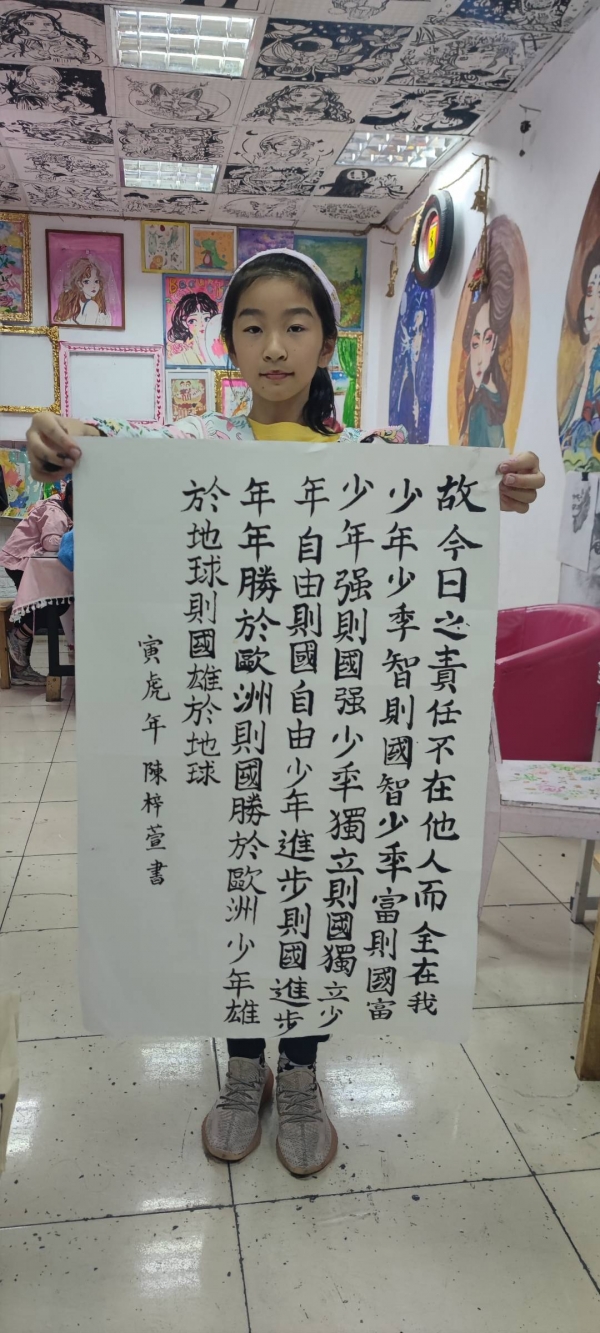 故今日之責任不在他人而全在我
少年少年智則國智少年富則國富
少年强則國强少年獨立則國獨立少
年自由則國自由少年進步則國進步
年年勝於歐洲則國勝於歐洲少年雄
於地球則國雄於地球
寅虎年陳梓萱書